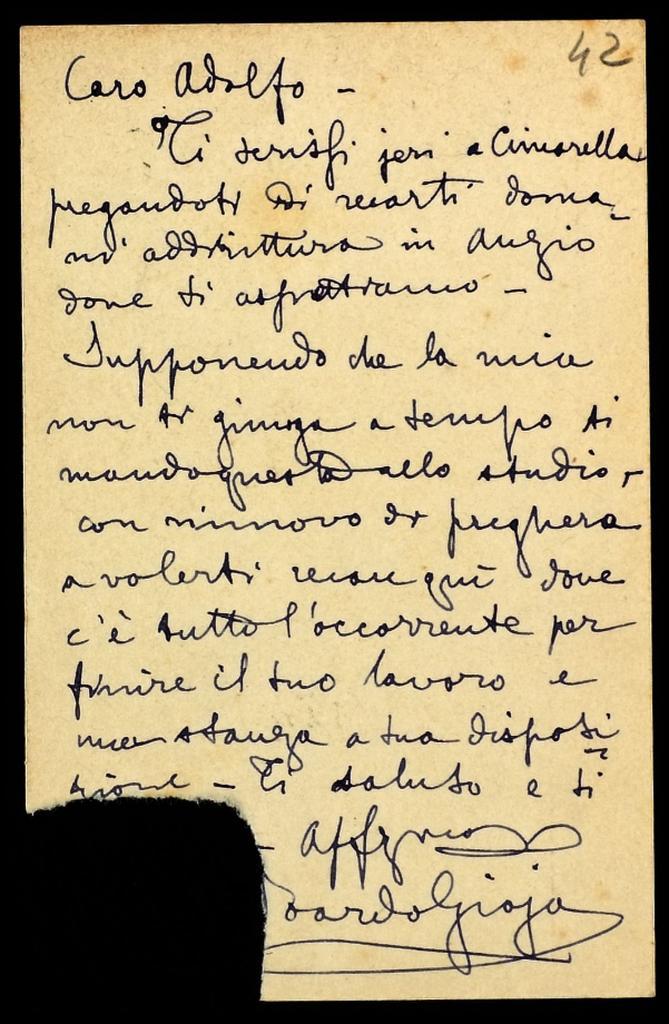 42
Caro Adolfo -
Ti scrissi jeri a Cimarella
pregandoti di recarti doma-
ni addirittura in Anzio
dove ti aspettiamo -
Supponendo che la mia
non ti giunga a tempo ti
mando questa allo studio,
con rinnovo di preghiera
a volerti recare qui dove
c'è tutto l'occorrente per
finire il tuo lavoro e
una stanza a tua disposi
zione - Ti saluto e ti
- Affmo
oardo Gioja